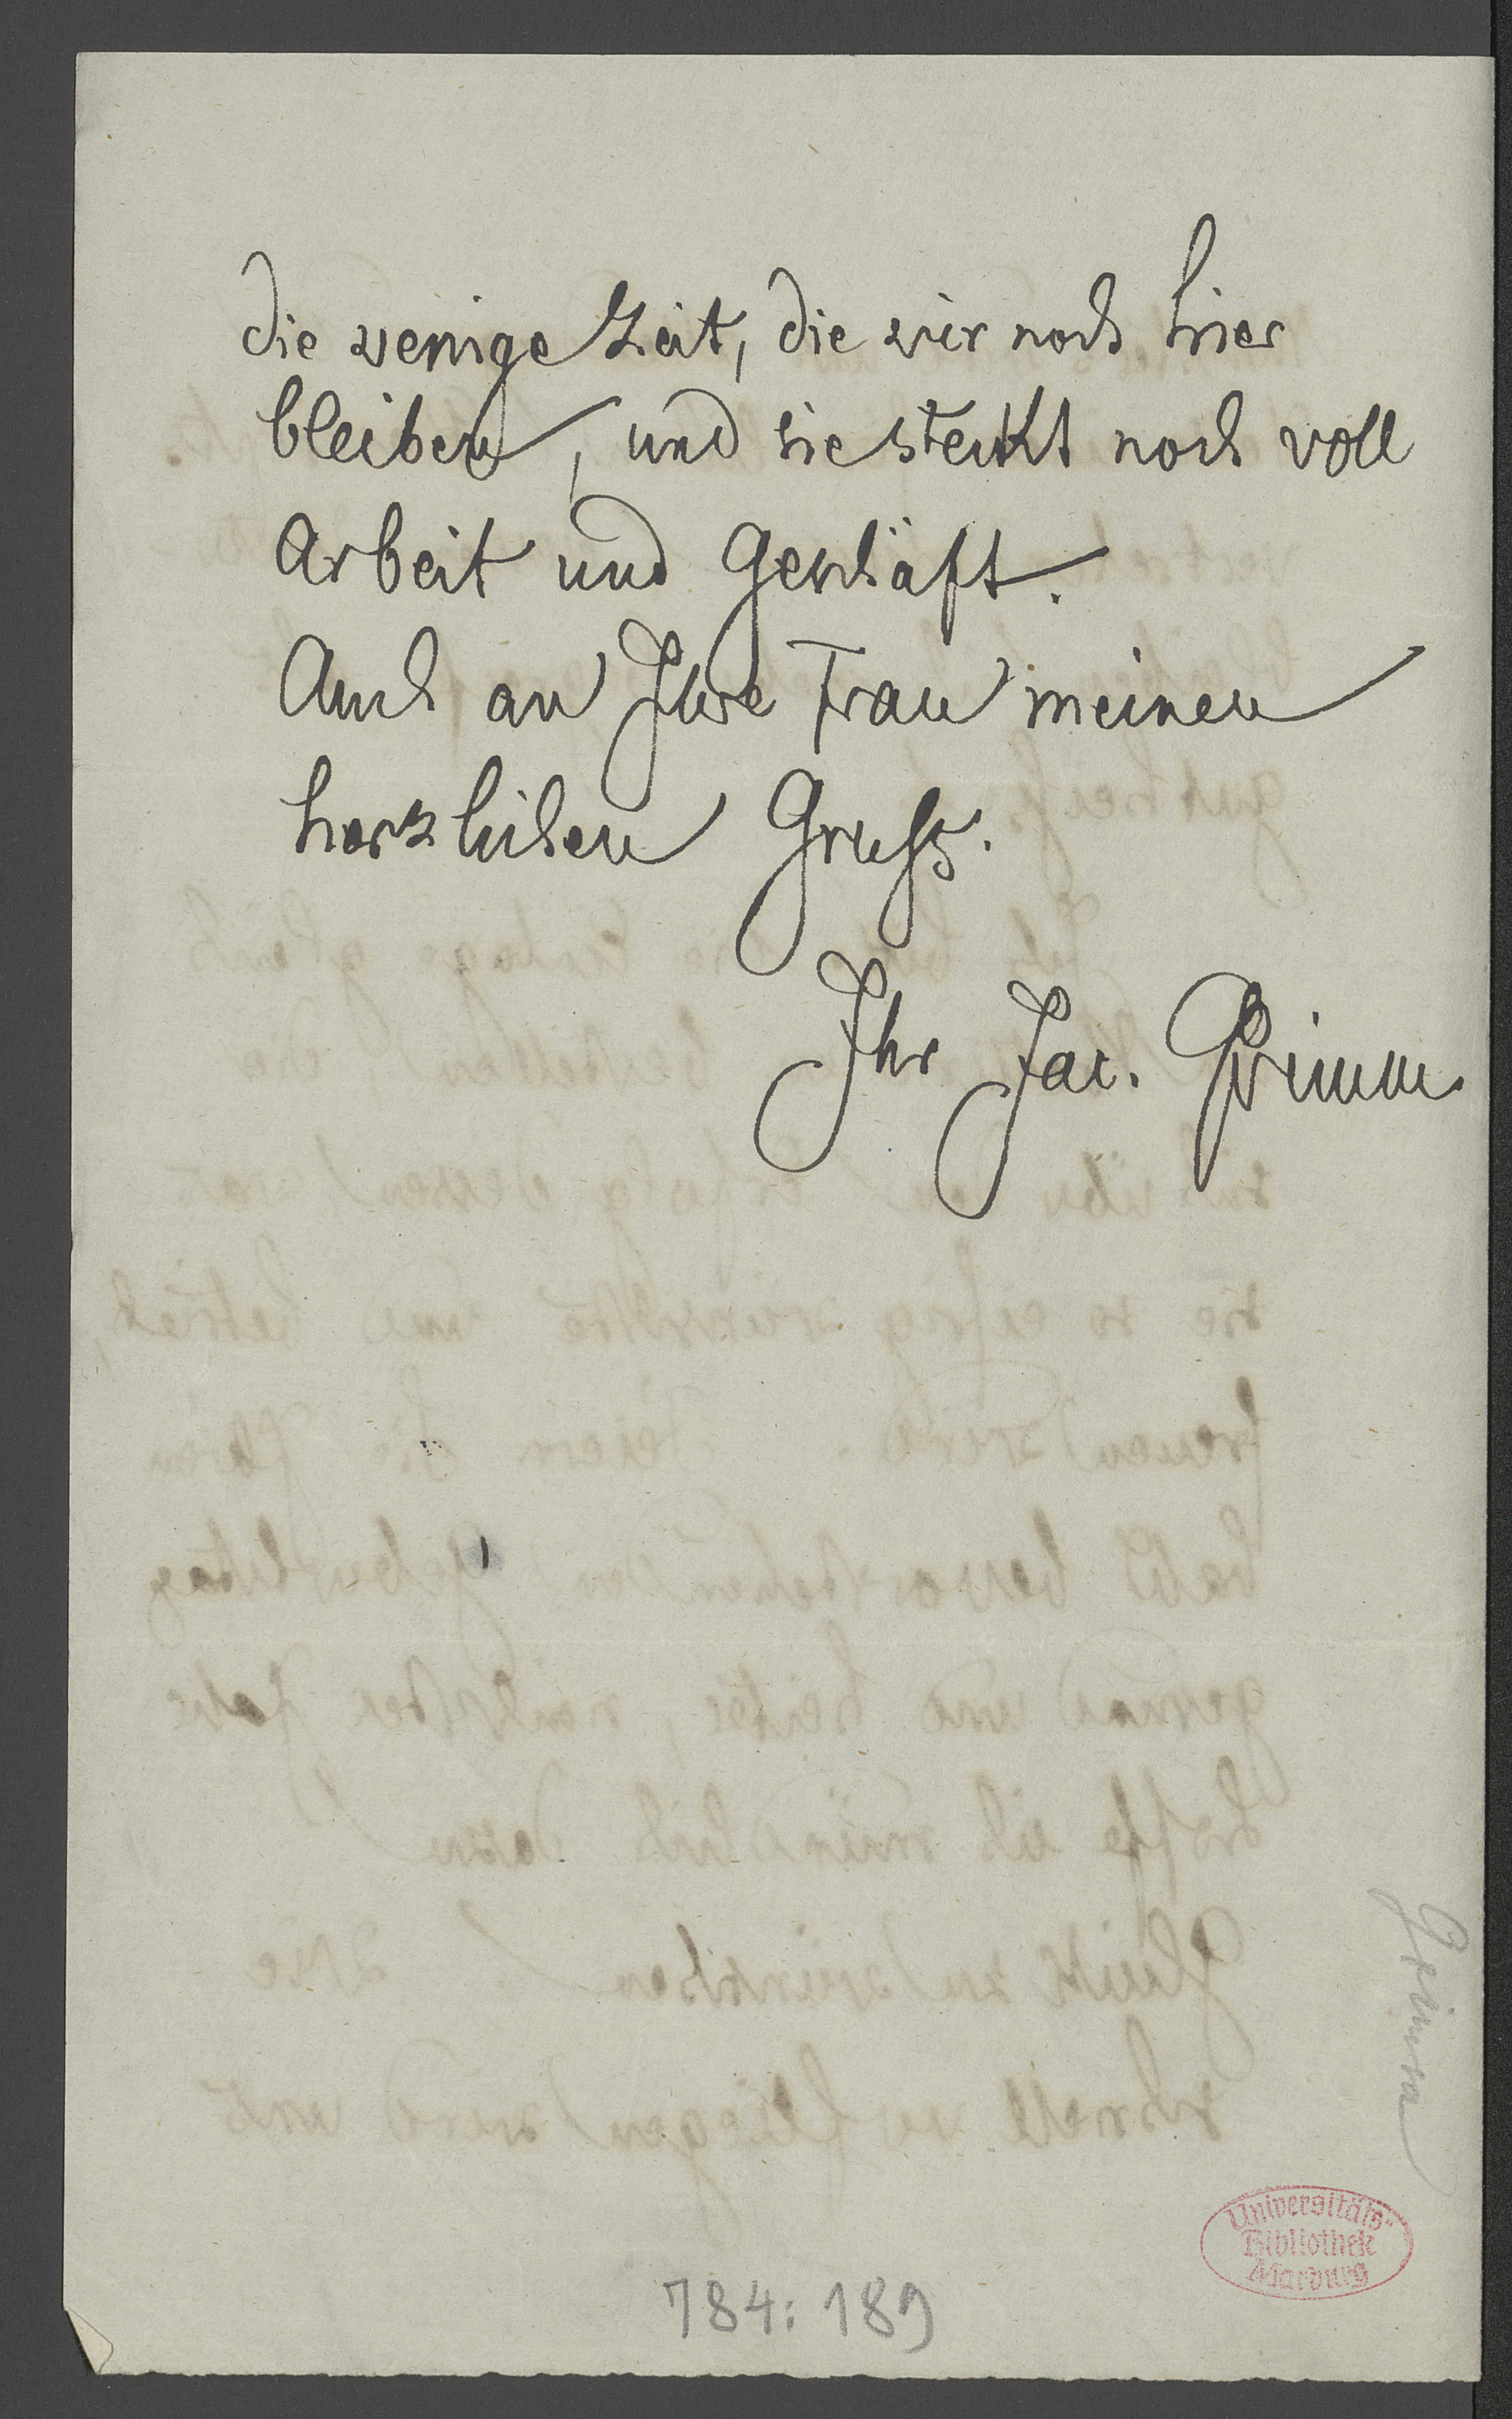 die wenige Zeit, die wir noch hier
bleiben, und sie steckt noch voll
Arbeit und Geschäft.
Auch an Ihre Frau meinen
herzlichen Gruß.
Ihr Jac. Grimm
Grimm
Universitäts-
Bibliothek
Marburg
784:189